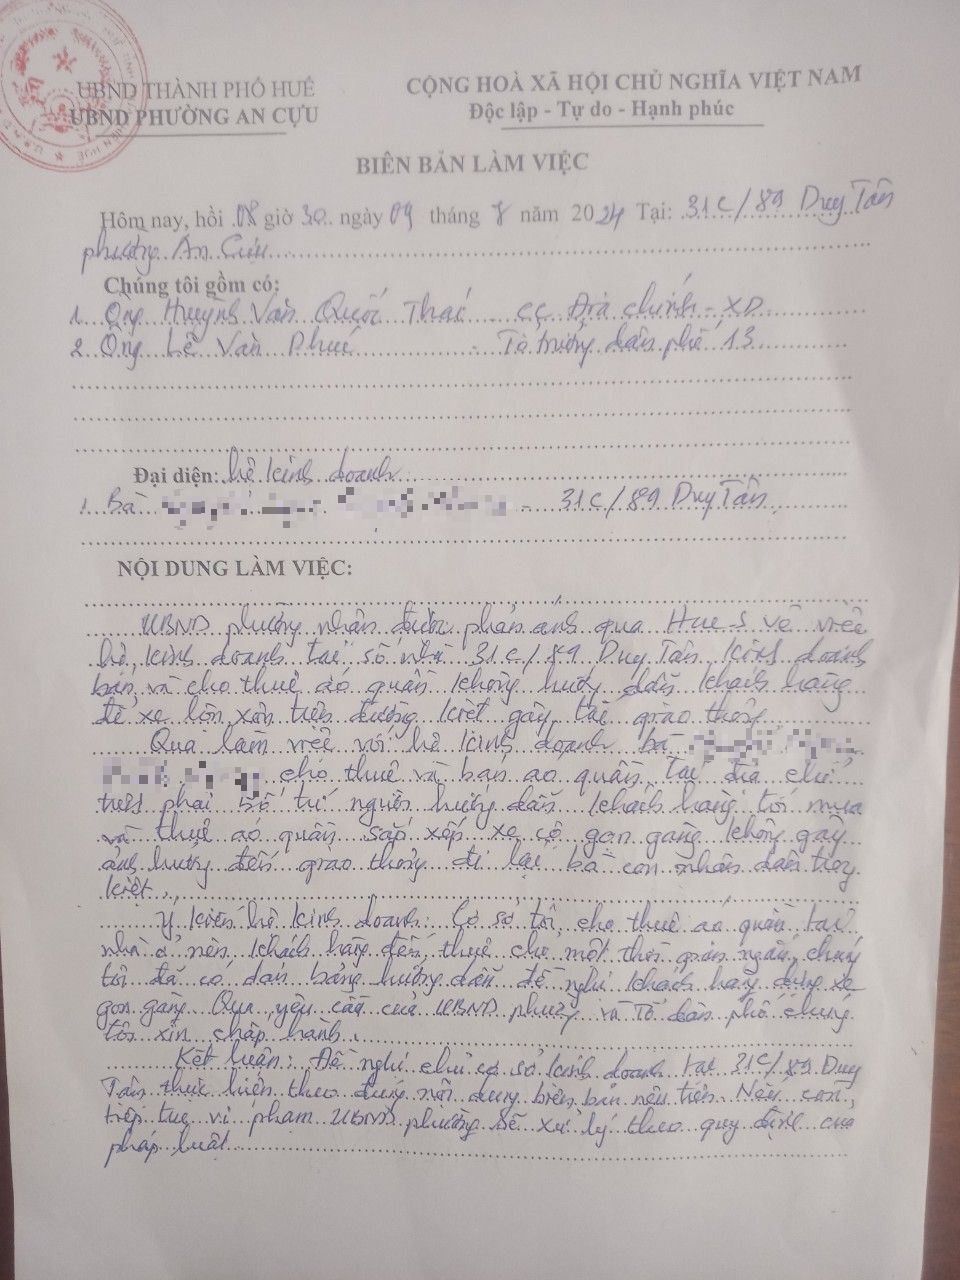 UBND THÀNH PHỐ HUẾ
UBND PHƯỜNG AN CỰU
CỘNG HOÀ XÃ HỘI CHỦ NGHĨA VIỆT NAM
Độc lập - Tự do - Hạnh phúc
BIÊN BẢN LÀM VIỆC
Hôm nay, hồi 08 giờ 30 ngày 09 tháng 8 năm 2024 Tại: 31C/89 Duy Tân
phường An Cựu
Chúng tôi gồm có:
1. Ông Huỳnh Văn Quốc Thái CC Địa chính - XD
2. Ông Lê Văn Phú - Tổ trưởng dân phố 13
Đại diện: hộ kinh doanh
1. Bà - 31C/89 Duy Tân
NỘI DUNG LÀM VIỆC:
UBND phường nhận được phản ánh qua Hue-S về việc
hộ kinh doanh tại số nhà 31C/89 Duy Tân kinh doanh
bán và cho thuê áo quần không hướng dẫn khách hàng
để xe lộn xộn trên đường kiệt gây tại giao thông
Qua làm việc với hộ kinh doanh bà
cho thuê và bán áo quần tại địa chỉ
trên phải bố trí người hướng dẫn khách hàng tới mua
và thuê áo quần sắp xếp xe cộ gọn gàng không gây
ảnh hưởng đến giao thông đi lại bà con nhân dân trong
kiệt.
Ý kiến hộ kinh doanh: Cơ sở tôi cho thuê áo quần tại
nhà ở nên khách hàng đến thuê chỉ một thời gian ngắn, chúng
tôi đã có dán bảng hướng dẫn đề nghị khách hàng dựng xe
gọn gàng. Qua yêu cầu của UBND phường và Tổ dân phố chúng
tôi xin chấp hành.
Kết luận: Đề nghị chủ cơ sở kinh doanh tại 31C/89 Duy
Tân thực hiện theo đúng nội dung biên bản nêu trên. Nếu còn
tiếp tục vi phạm UBND phường sẽ xử lý theo quy định của
pháp luật